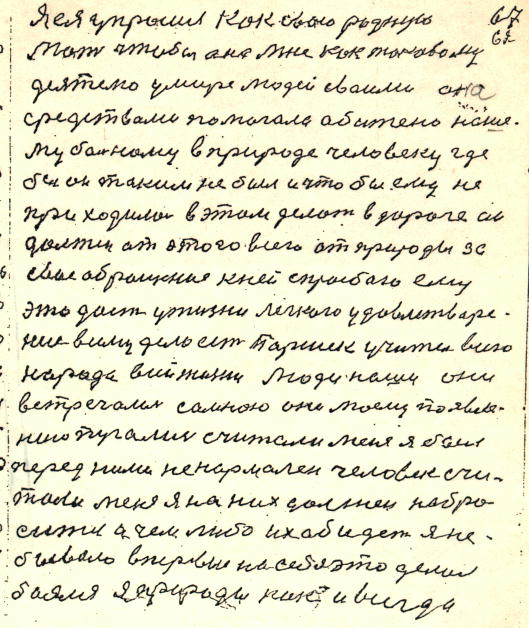 Я ея упросил как свою родную 67
мать чтобы ана мне как таковому 62
деятелю умире людей своими она
средствами помогала абижено наше-
му больному в природе человеку где
бы он таким не был и что бы ему не
приходилос в этом делать в дароге он
должен от этого всего от природы за
свае обращение к ней спрозбаю ему
это дает ужизни легкого удовлетваре-
ние вему делоет Паршек учител всего
народа всей жизни Люди наши они
встречалис самною они моему появле-
нию пугалис считали меня я был
перед ними ненармален человек счи-
тали меня я на них должен набро
ситя а чем либо их абидет я не-
бывало впервые на себя это делал
баялся я природы как и всегда